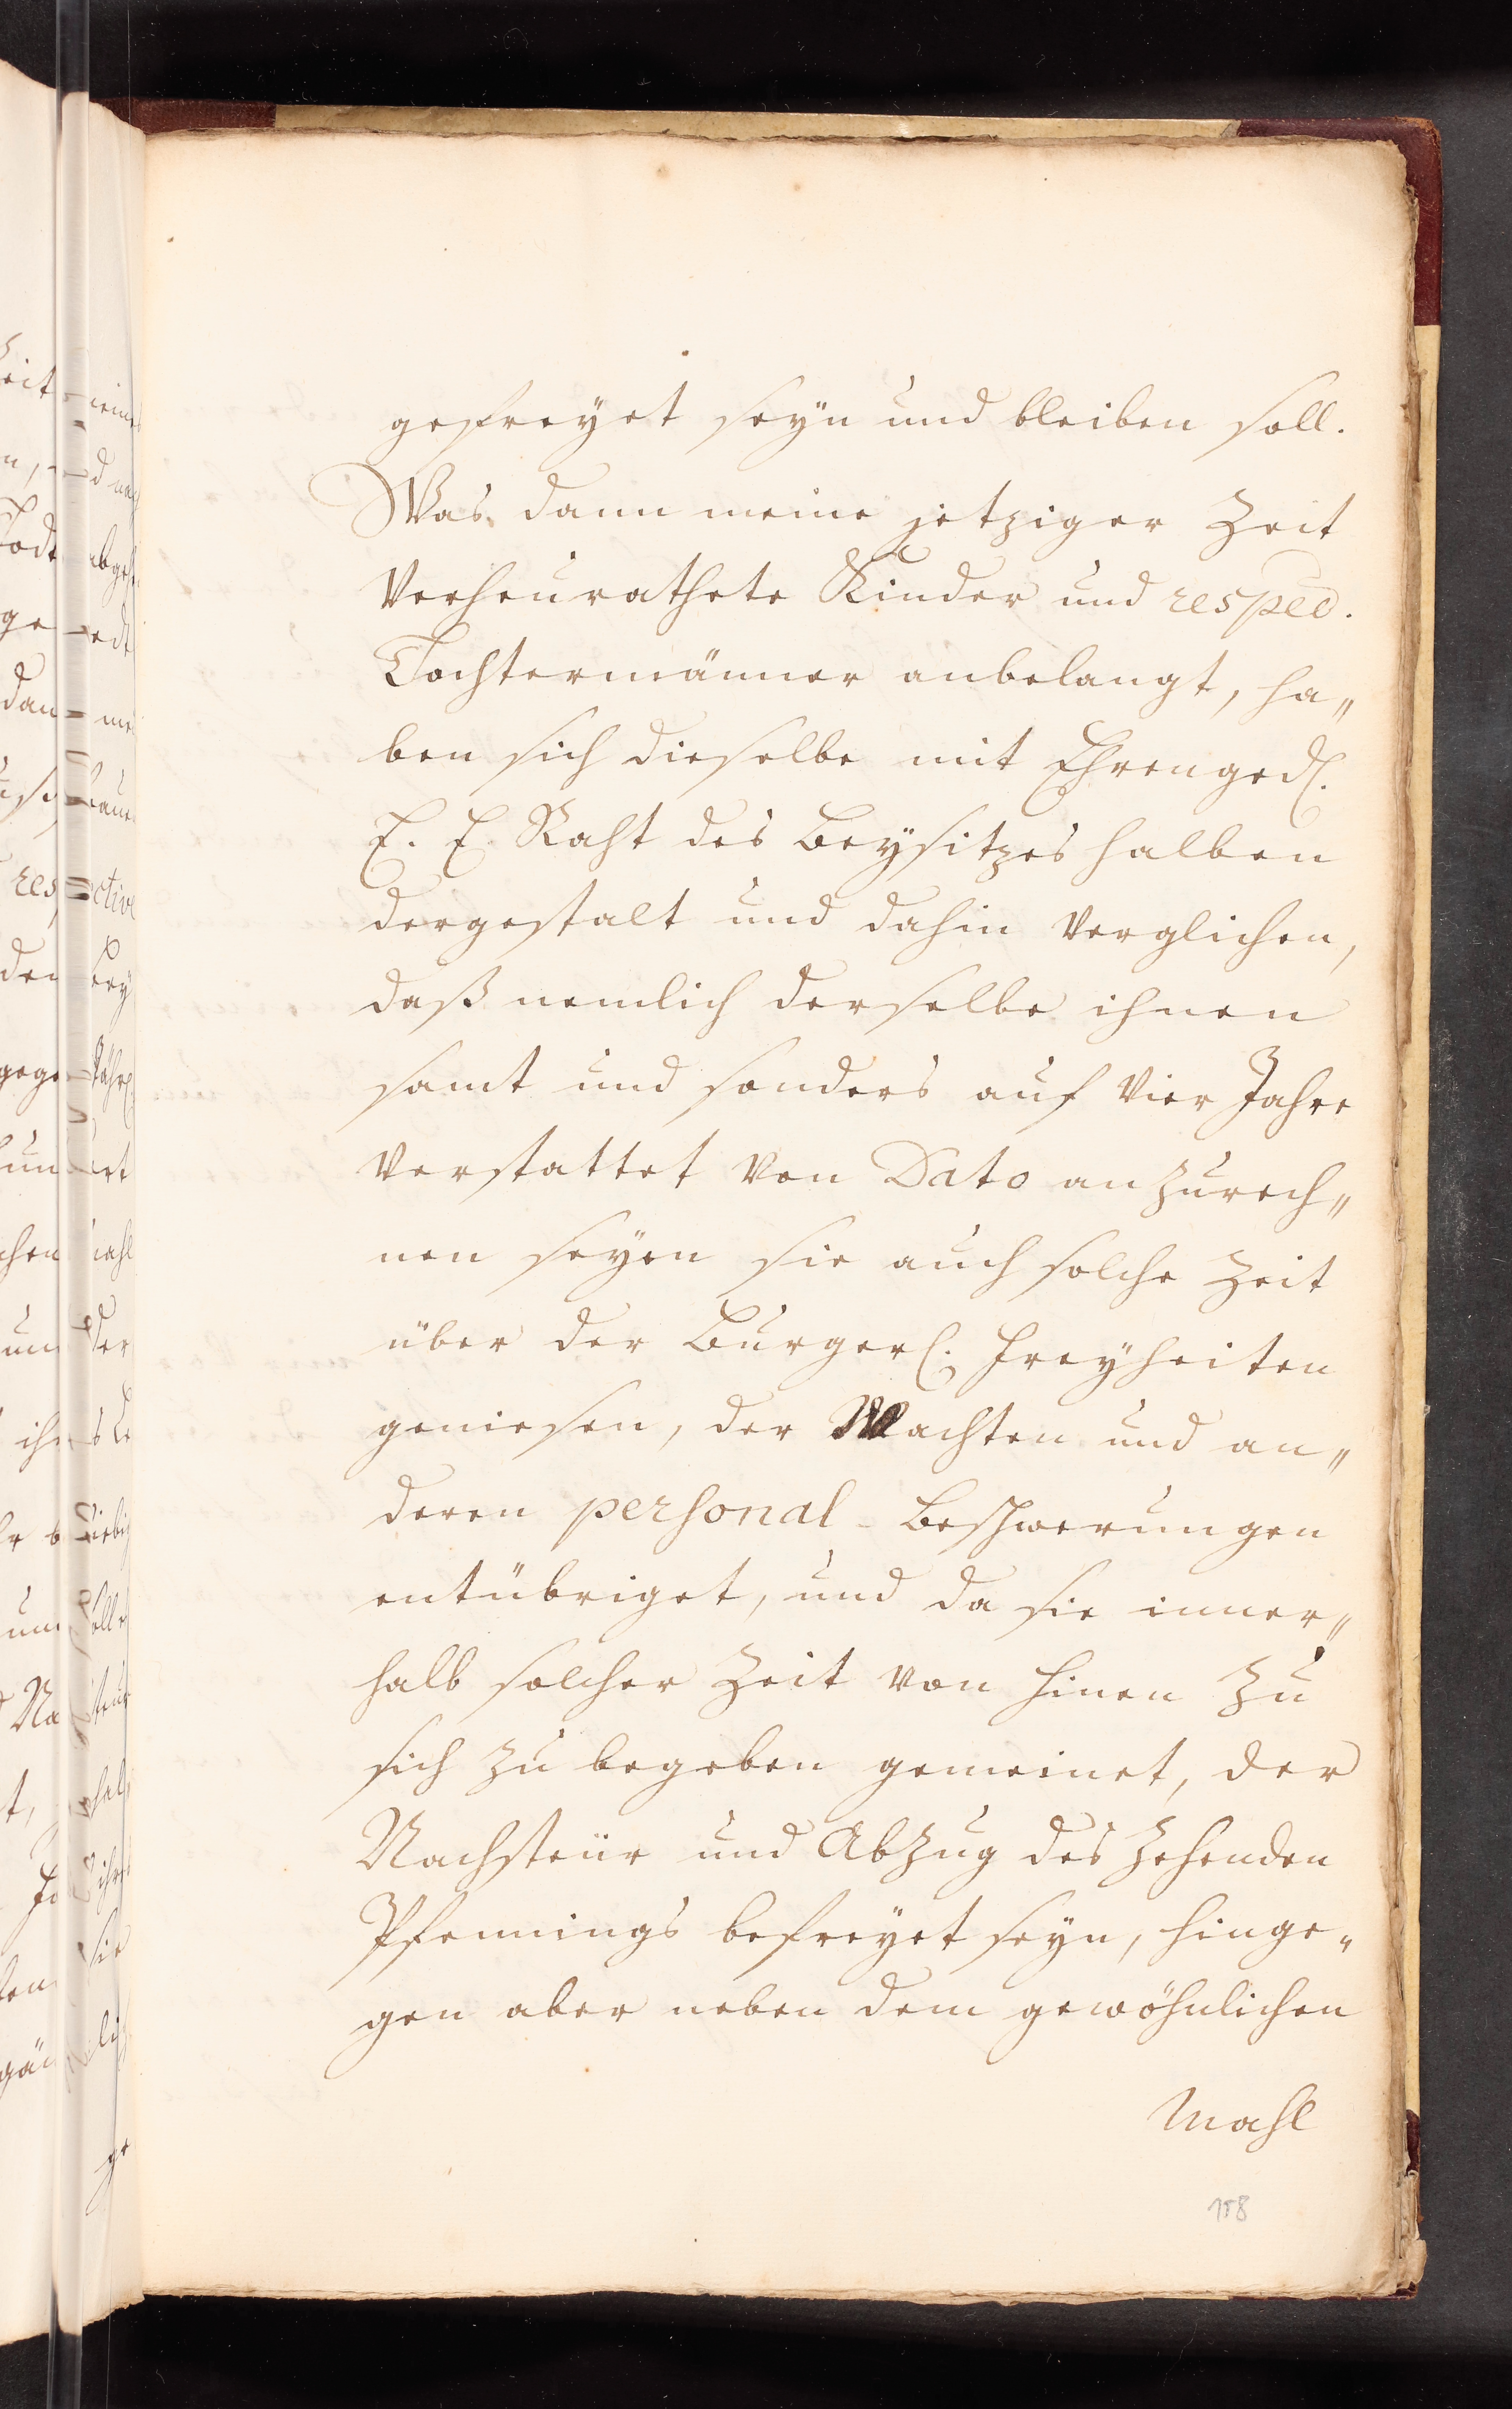 gefreyet seyn und bleiben soll.
Was dann meine jetziger Zeit
Verheurathete Kinder und respec.
Tochtermänner anbelangt, ha„
ben sich dieselbe mit Ehrenged.
E. E. Raht des Beysitzes halben
dergestalt und dahin verglichen,
daß nemlich derselbe ihnen
samt und sonders auf vier Jahre
verstattet von Dato anzurech„
nen seyen sie auch solche Zeit
über der Burgerl. Freyheiten
geniesen, der Wachten und an„
deren personal-Beschwerungen
entübriget, und da sie inner„
halb solcher Zeit von hinen zu
sich zu begeben gemeinet, der
Nachsteür und Abzug des Zehenden
Pfennings befreyet seyn, hinge„
gen aber neben dem gewöhnlichen
Mahl
158